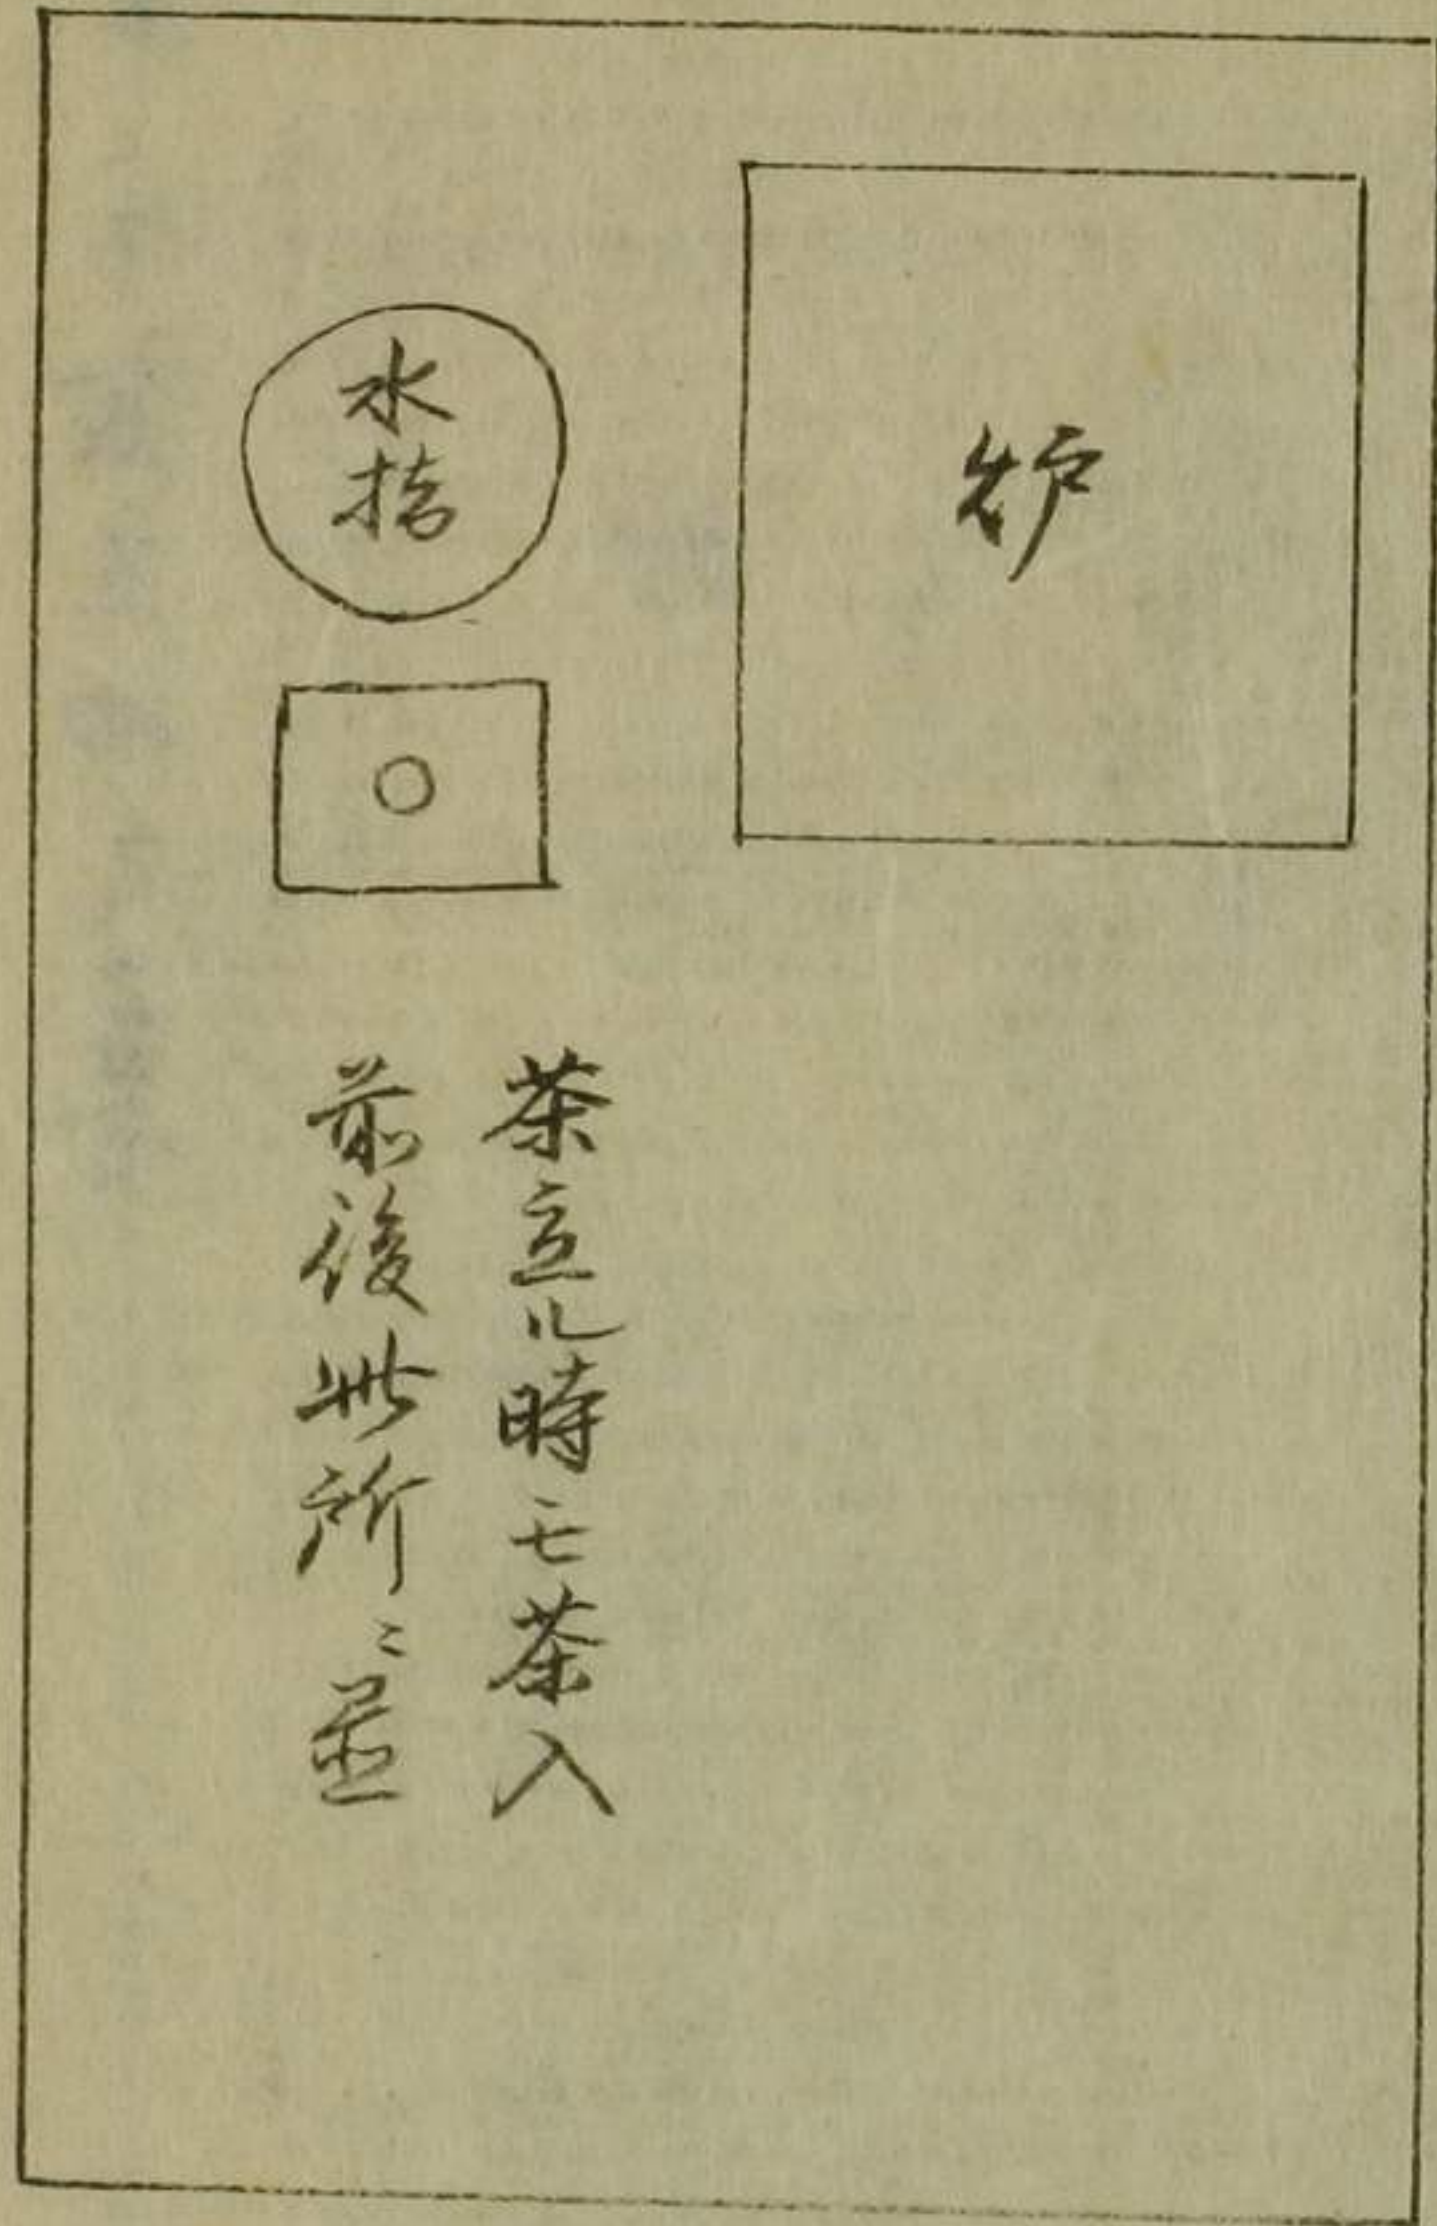 炉
水
指
茶立ル時モ茶入
前後此所ニ置